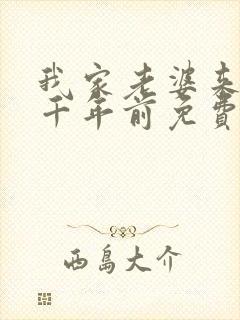 我家老婆来
千年前免費
西島大介